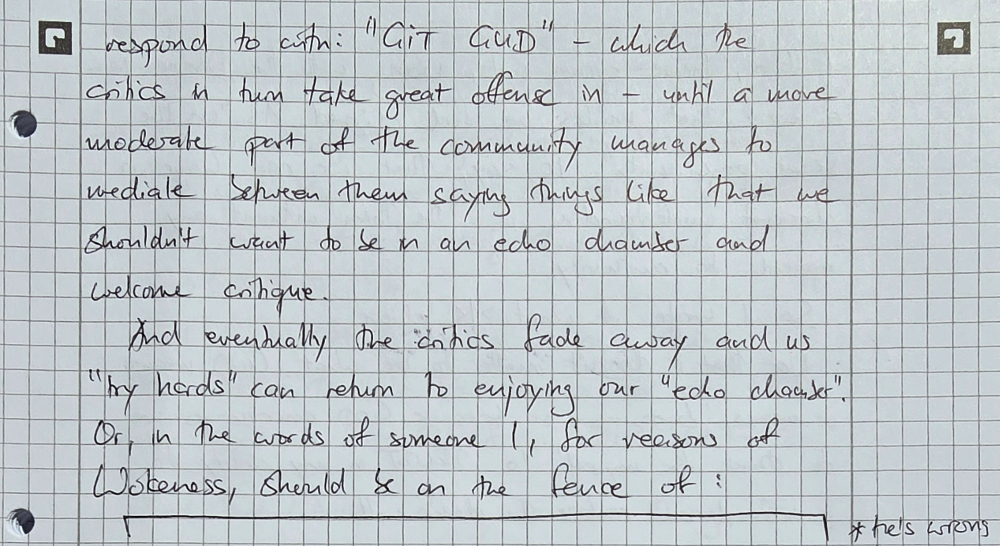 respond to with: "GIT GUD" - which the
critics in turn take great offense in - until a more
moderate part of the community manages to
mediate between them saying things like that we
shouldn't want to be in an echo chamber and
welcome critique.
And eventually the critics fade away and us
"try hards" can return to enjoying our "echo chamber".
Or, in the words of someone I, for reasons of
Wokeness, should be on the fence of:
* he's wrong